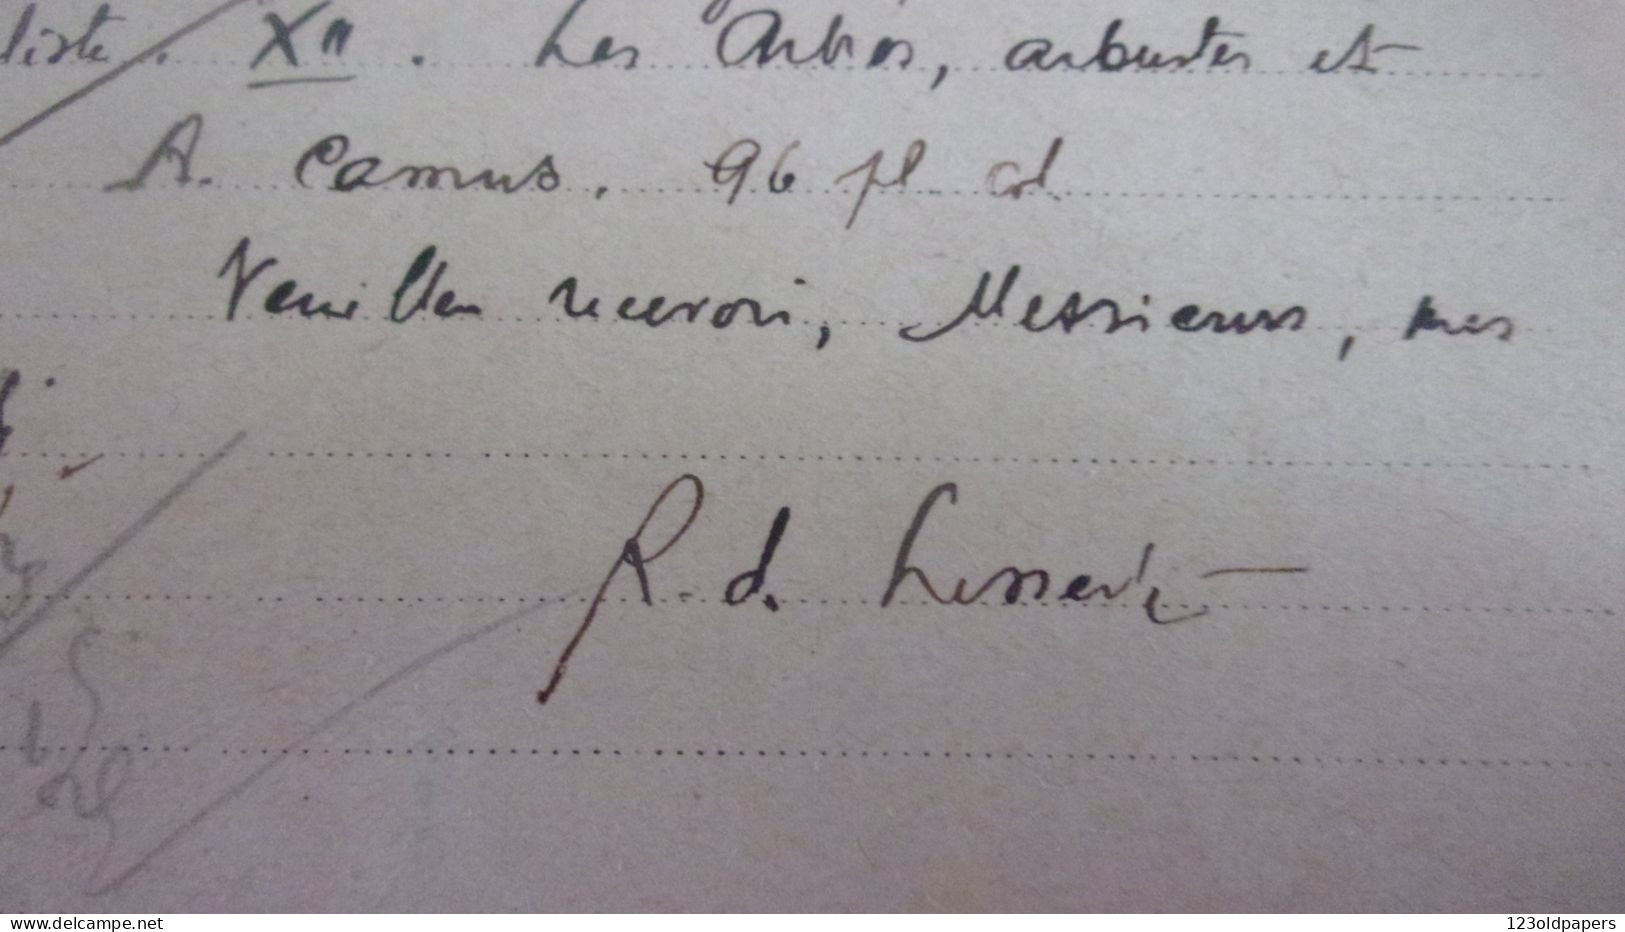 liste. XII. Les Arbres, arbustes et
A. Camus. 96 pl. col.
Veuillez recevoir, Messieurs, mes
R. d. Lessert
www.delcampe.net 123oldpapers